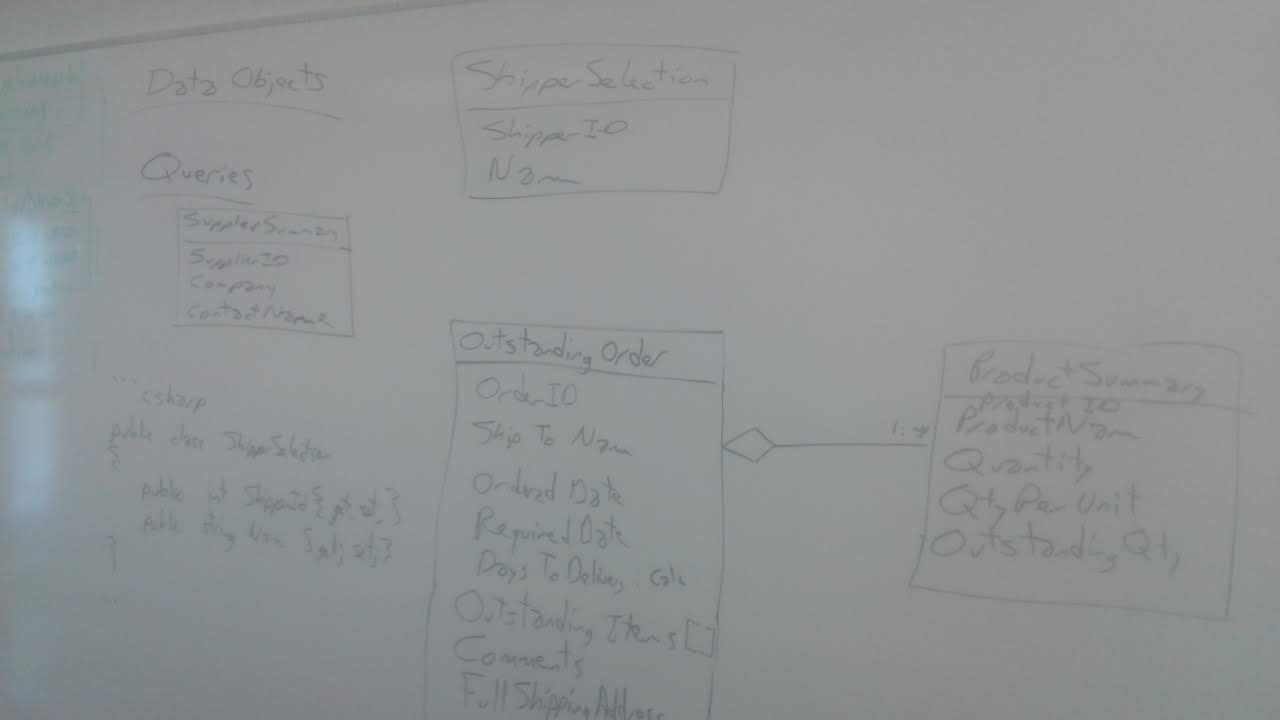 Data Objects
Queries
SupplierSummary
SupplierID
Company
ContactName
```csharp
public class ShipperSelection
{
public int ShipperId { get; set; }
public string Name { get; set; }
}
```
ShipperSelection
ShipperID
Name
Outstanding Order
OrderID
Ship To Name
Ordered Date
Required Date
Days To Delivery calc
Outstanding Items []
Comments
Full Shipping Address
1..*
ProductSummary
Product ID
ProductName
Quantity
Qty Per Unit
Outstanding Qty